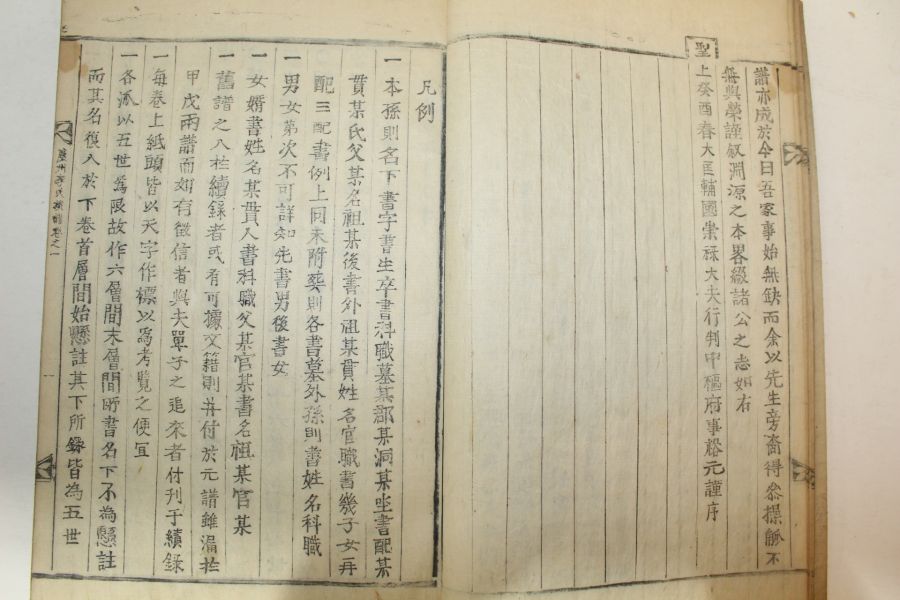 譜亦成於今日吾家事始無缺而余以先生旁裔得叅操觚不
無與榮謹叙淵源之本畧綴諸公之志如右
聖
上癸酉春大匡輔國崇祿大夫行判中樞府事裕元謹序
凡例
一本孫則名下書字書生卒書科職墓某郡某洞某坐書配某
貫某氏父某名祖某後書外祖某貫姓名官職書幾子女再
配三配書例上同未附葬則各書墓外孫則書姓名科職
一男女第次不可詳知先書男後書女
一女婿書姓名某貫人書科職父某官某書名祖某官某
一舊譜之入於續錄者或有可據文籍則幷付於元譜雖漏於
甲戊兩譜而如有徵信者與夫單子之追來者付刊于續錄
一每卷上紙頭皆以天字作標以爲考覽之便宜
一各派以五世爲限故作六層間末層間所書名下不為懸註
而其名復入於下卷首層間始懸註其下所錄皆為五世
李氏
卷之一
一